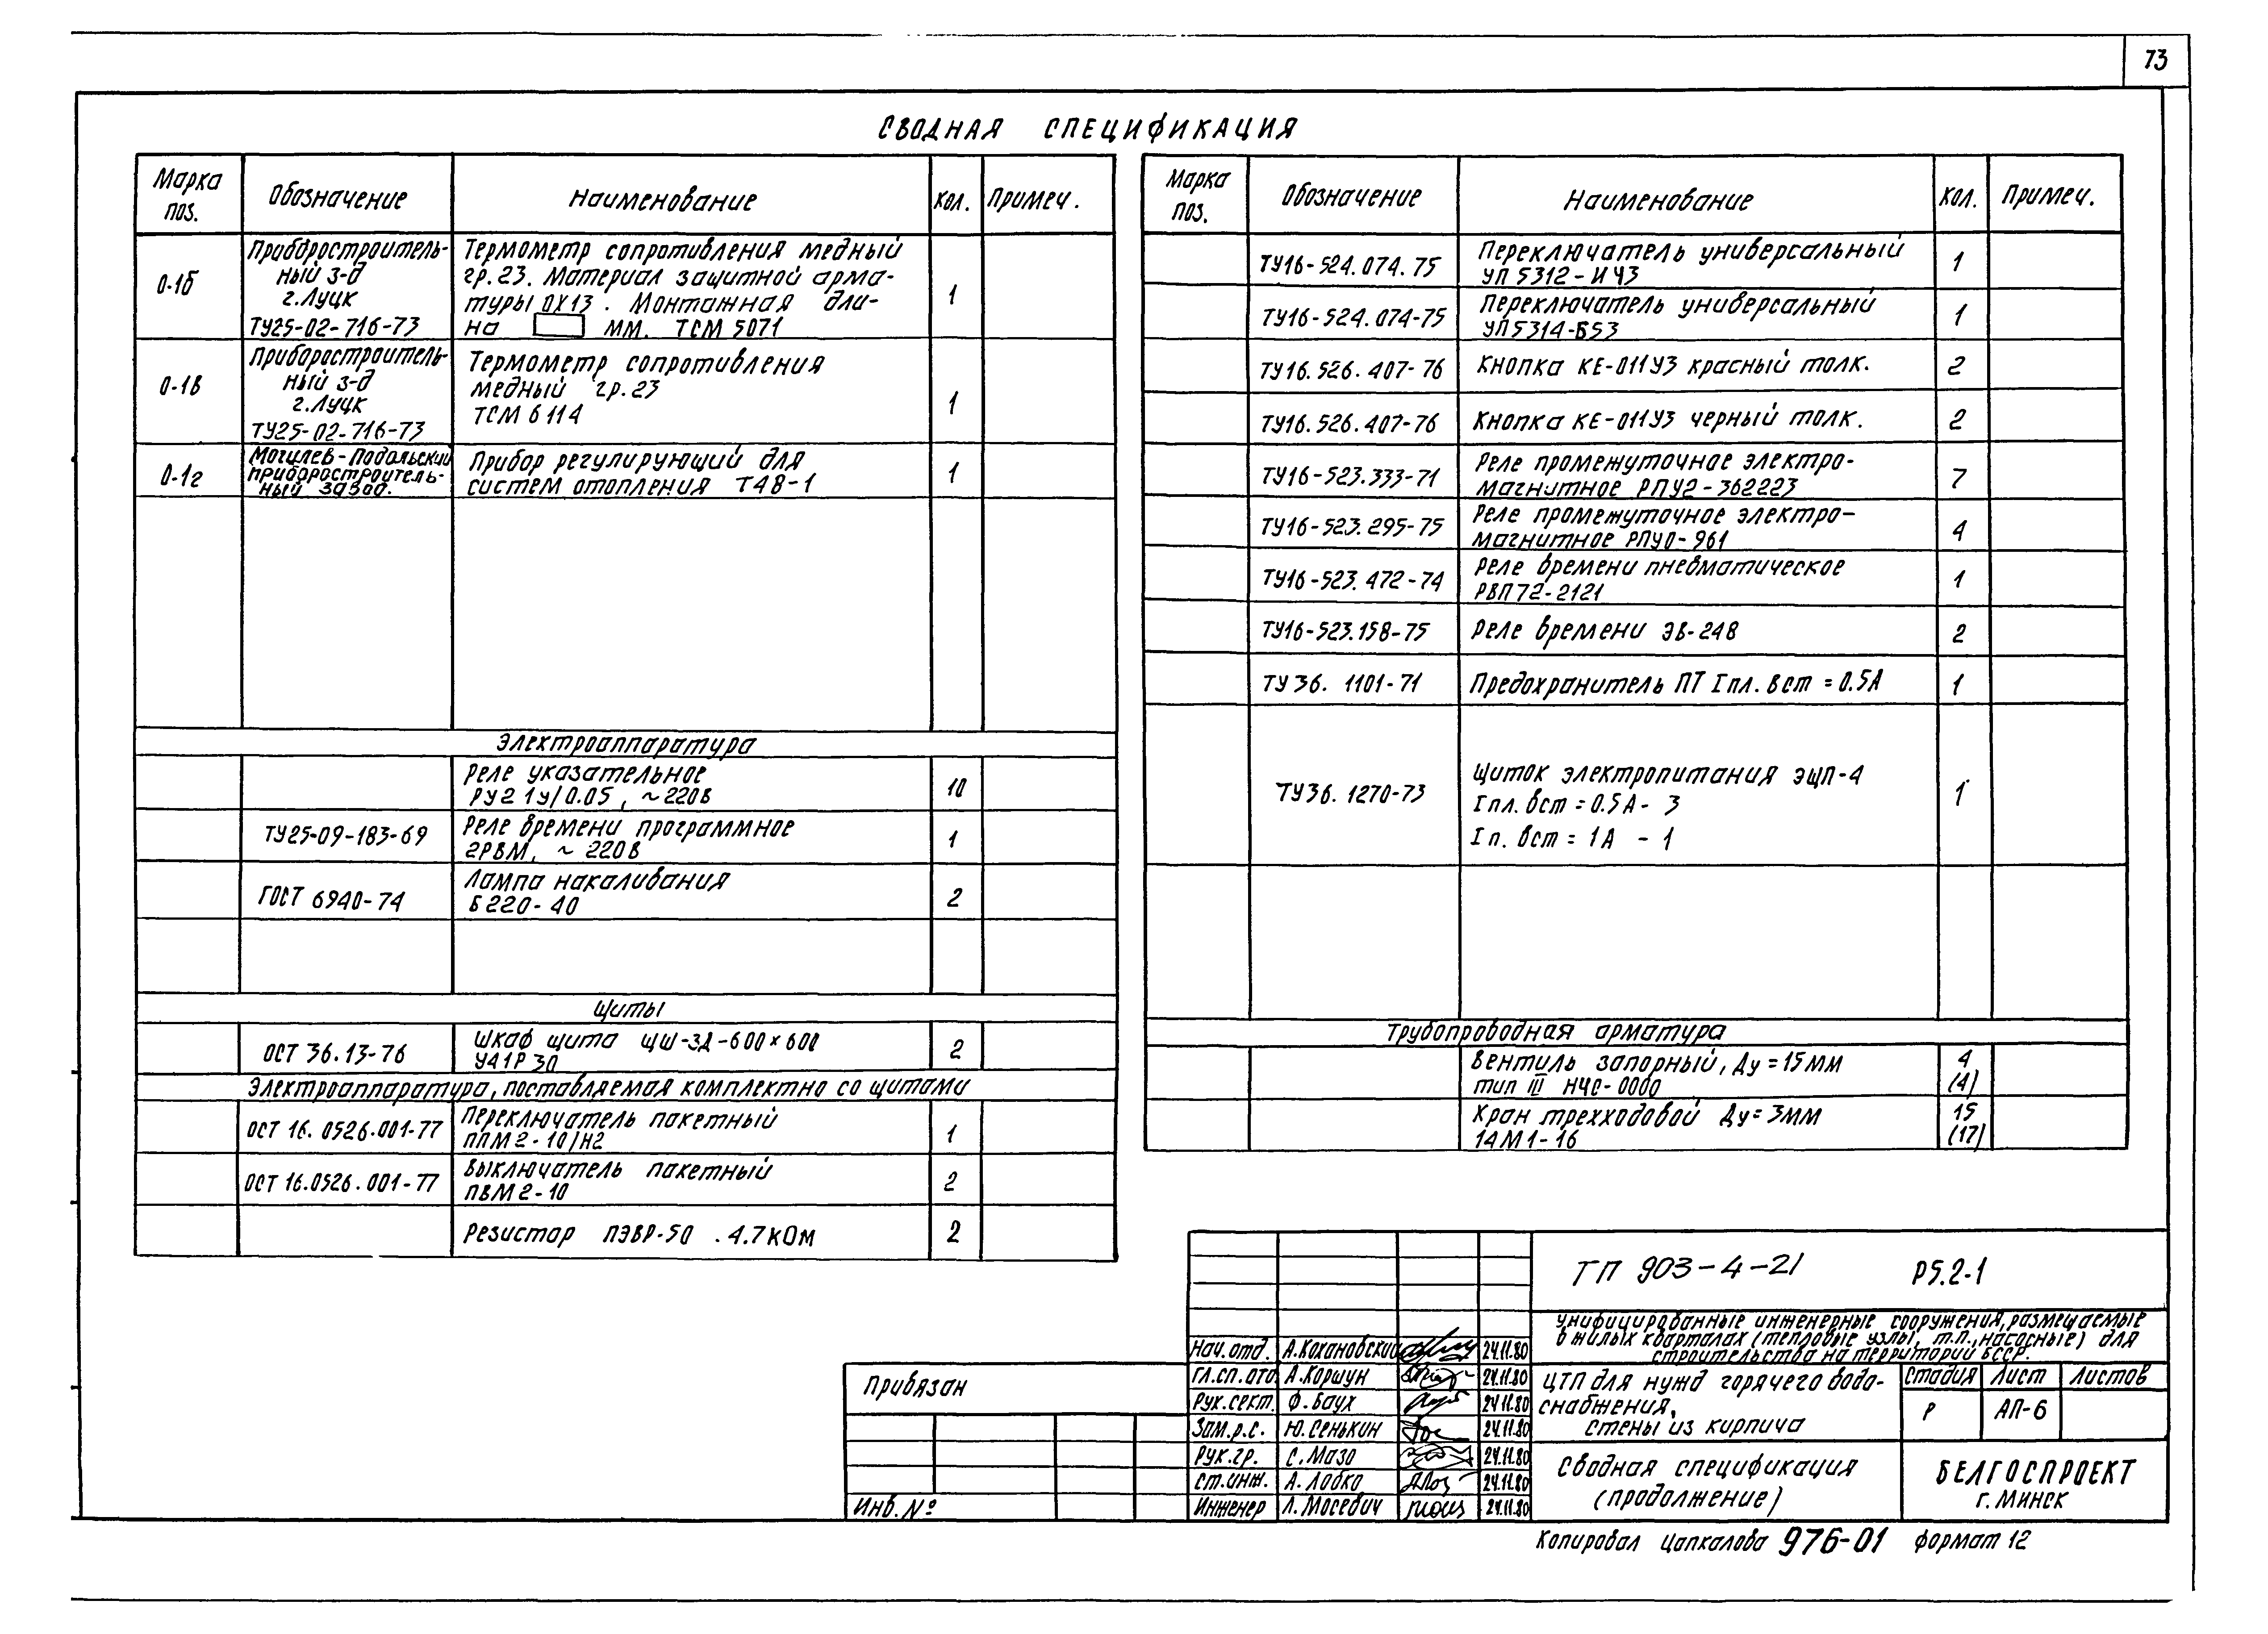 73
СВОДНАЯ СПЕЦИФИКАЦИЯ
Марка поз. Обозначение Наименование Кол. Примеч.
0-1б
Приборостроитель-
ный з-д
г.Луцк
ТУ25-02-716-73
Термометр сопротивления медный
гр.23. Материал защитной арма-
туры 0Х13. Монтажная дли-
на мм. ТСМ 5071
1
0-1в
Приборостроитель-
ный з-д
г.Луцк
ТУ25-02-716-73
Термометр сопротивления
медный гр.23
ТСМ 6114
1
0-1г
Могилев-Подольский
приборостроитель-
ный завод.
Прибор регулирующий для
систем отопления Т48-1
1
Электроаппаратура
Реле указательное
РУ21У/0.05, ~220В
10
ТУ25-09-183-69
Реле времени программное
2РВМ, ~ 220В
1
ГОСТ 6940-74
Лампа накаливания
Б220-40
2
Щиты
ОСТ 36.13-76
Шкаф щита ЩШ-3Д-600×600
У41Р30
2
Электроаппаратура, поставляемая комплектно со щитами
ОСТ 16.0526.001-77
Переключатель пакетный
ППМ2-10/Н2
1
ОСТ 16.0526.001-77
Выключатель пакетный
ПВМ2-10
2
Резистор ПЭВР-50 . 4.7кОм
2
Марка поз. Обозначение Наименование Кол. Примеч.
ТУ16-524.074.75
Переключатель универсальный
УП 5312-ИЧ3
1
ТУ16-524.074-75
Переключатель универсальный
УП5314-Б53
1
ТУ16.526.407-76
Кнопка КЕ-011У3 красный толк.
2
ТУ16.526.407-76
Кнопка КЕ-011У3 черный толк.
2
ТУ16-523.333-71
Реле промежуточное электро-
магнитное РПУ2-362223
7
ТУ16-523.295-75
Реле промежуточное электро-
магнитное РПУ0-961
4
ТУ16-523.472-74
Реле времени пневматическое
РВП72-2121
1
ТУ16-523.158-75
Реле времени ЭВ-248
2
ТУ36. 1101-71
Предохранитель ПТ Iпл.вст = 0.5А
1
ТУ36. 1270-73
Щиток электропитания ЭЩП-4
Iпл.вст = 0.5А - 3
Iп. вст = 1А - 1
1
Трубопроводная арматура
Вентиль запорный, Ду = 15мм
тип III НЧС-0000
4
(4)
Кран трехходовой Ду = 3мм
14М1-16
15
(17)
Привязан
Инв.№
Нач.отд. А.Кохановский 24.11.80
Гл.сп.отд. А.Коршун 24.11.80
Рук.сект. Ф.Баух 24.11.80
Зам.р.с. Ю.Сенькин 24.11.80
Рук.гр. С.Мазо 24.11.80
Ст.инж. А.Лобко 24.11.80
Инженер Л.Мосевич 24.11.80
ТП 903-4-21 Р5.2-1
Унифицированные инженерные сооружения, размещаемые
в жилых кварталах (тепловые узлы, т.п., насосные) для
строительства на территории БССР.
ЦТП для нужд горячего водо-
снабжения,
стены из кирпича
Стадия Лист Листов
Р АП-6
Сводная спецификация
(продолжение)
БЕЛГОСПРОЕКТ
г. Минск
Копировал Цапкалова 976-01 формат 12